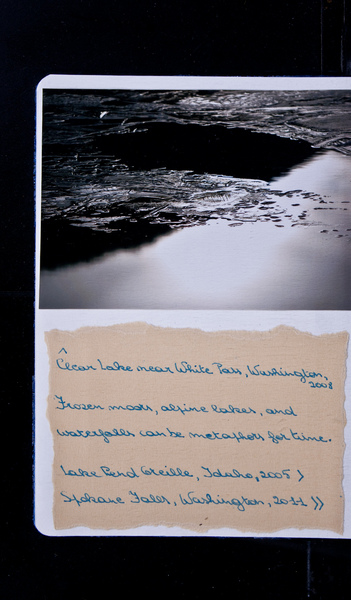 ^
Clear Lake near White Pass, Washington,
2008
Frozen moors, alpine lakes, and
waterfalls can be metaphors for time.
Lake Pend Oreille, Idaho, 2005 >
Spokane Falls, Washington, 2011 >>